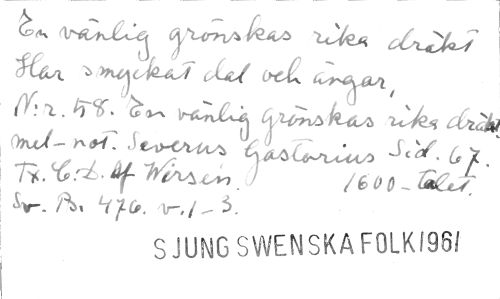 En vänlig grönskas rika dräkt
Har smyckat dal och ängar,
N:r. 58. En vänlig grönskas rika dräkt.
mel-not. Severus Gastorius Sid. 67.
Tx. C.D. af Wirsén. 1600-talet.
Sv. Ps. 476. v. 1-3.
SJUNG SWENSKA FOLK 1961